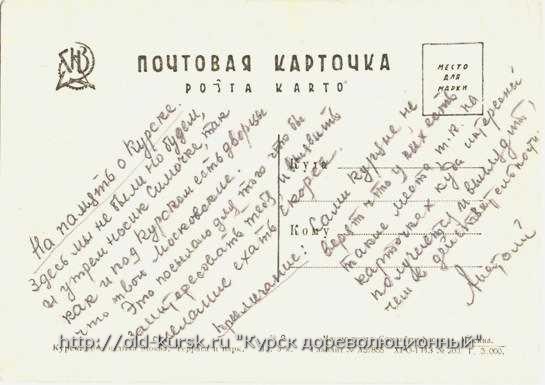 ПОЧТОВАЯ КАРТОЧКА
POŞTA KARTO
МЕСТО
ДЛЯ
МАРКИ
Куда
Кому
На память о Курске.
Здесь мы не были но будем,
и утрем носик Симочке, так
как и под Курском есть дворцы
что твои московские.
Это посылаю для того что бы
заинтересовать тебя и выявить
желание ехать скорее.
Примечание: Сами куряне не
верят что у них есть
такие места т.к. на
карточках куда интересней
получается и выглядит,
чем в действительности.
Анатолий
http://old-kursk.ru "Курск дореволюционный"